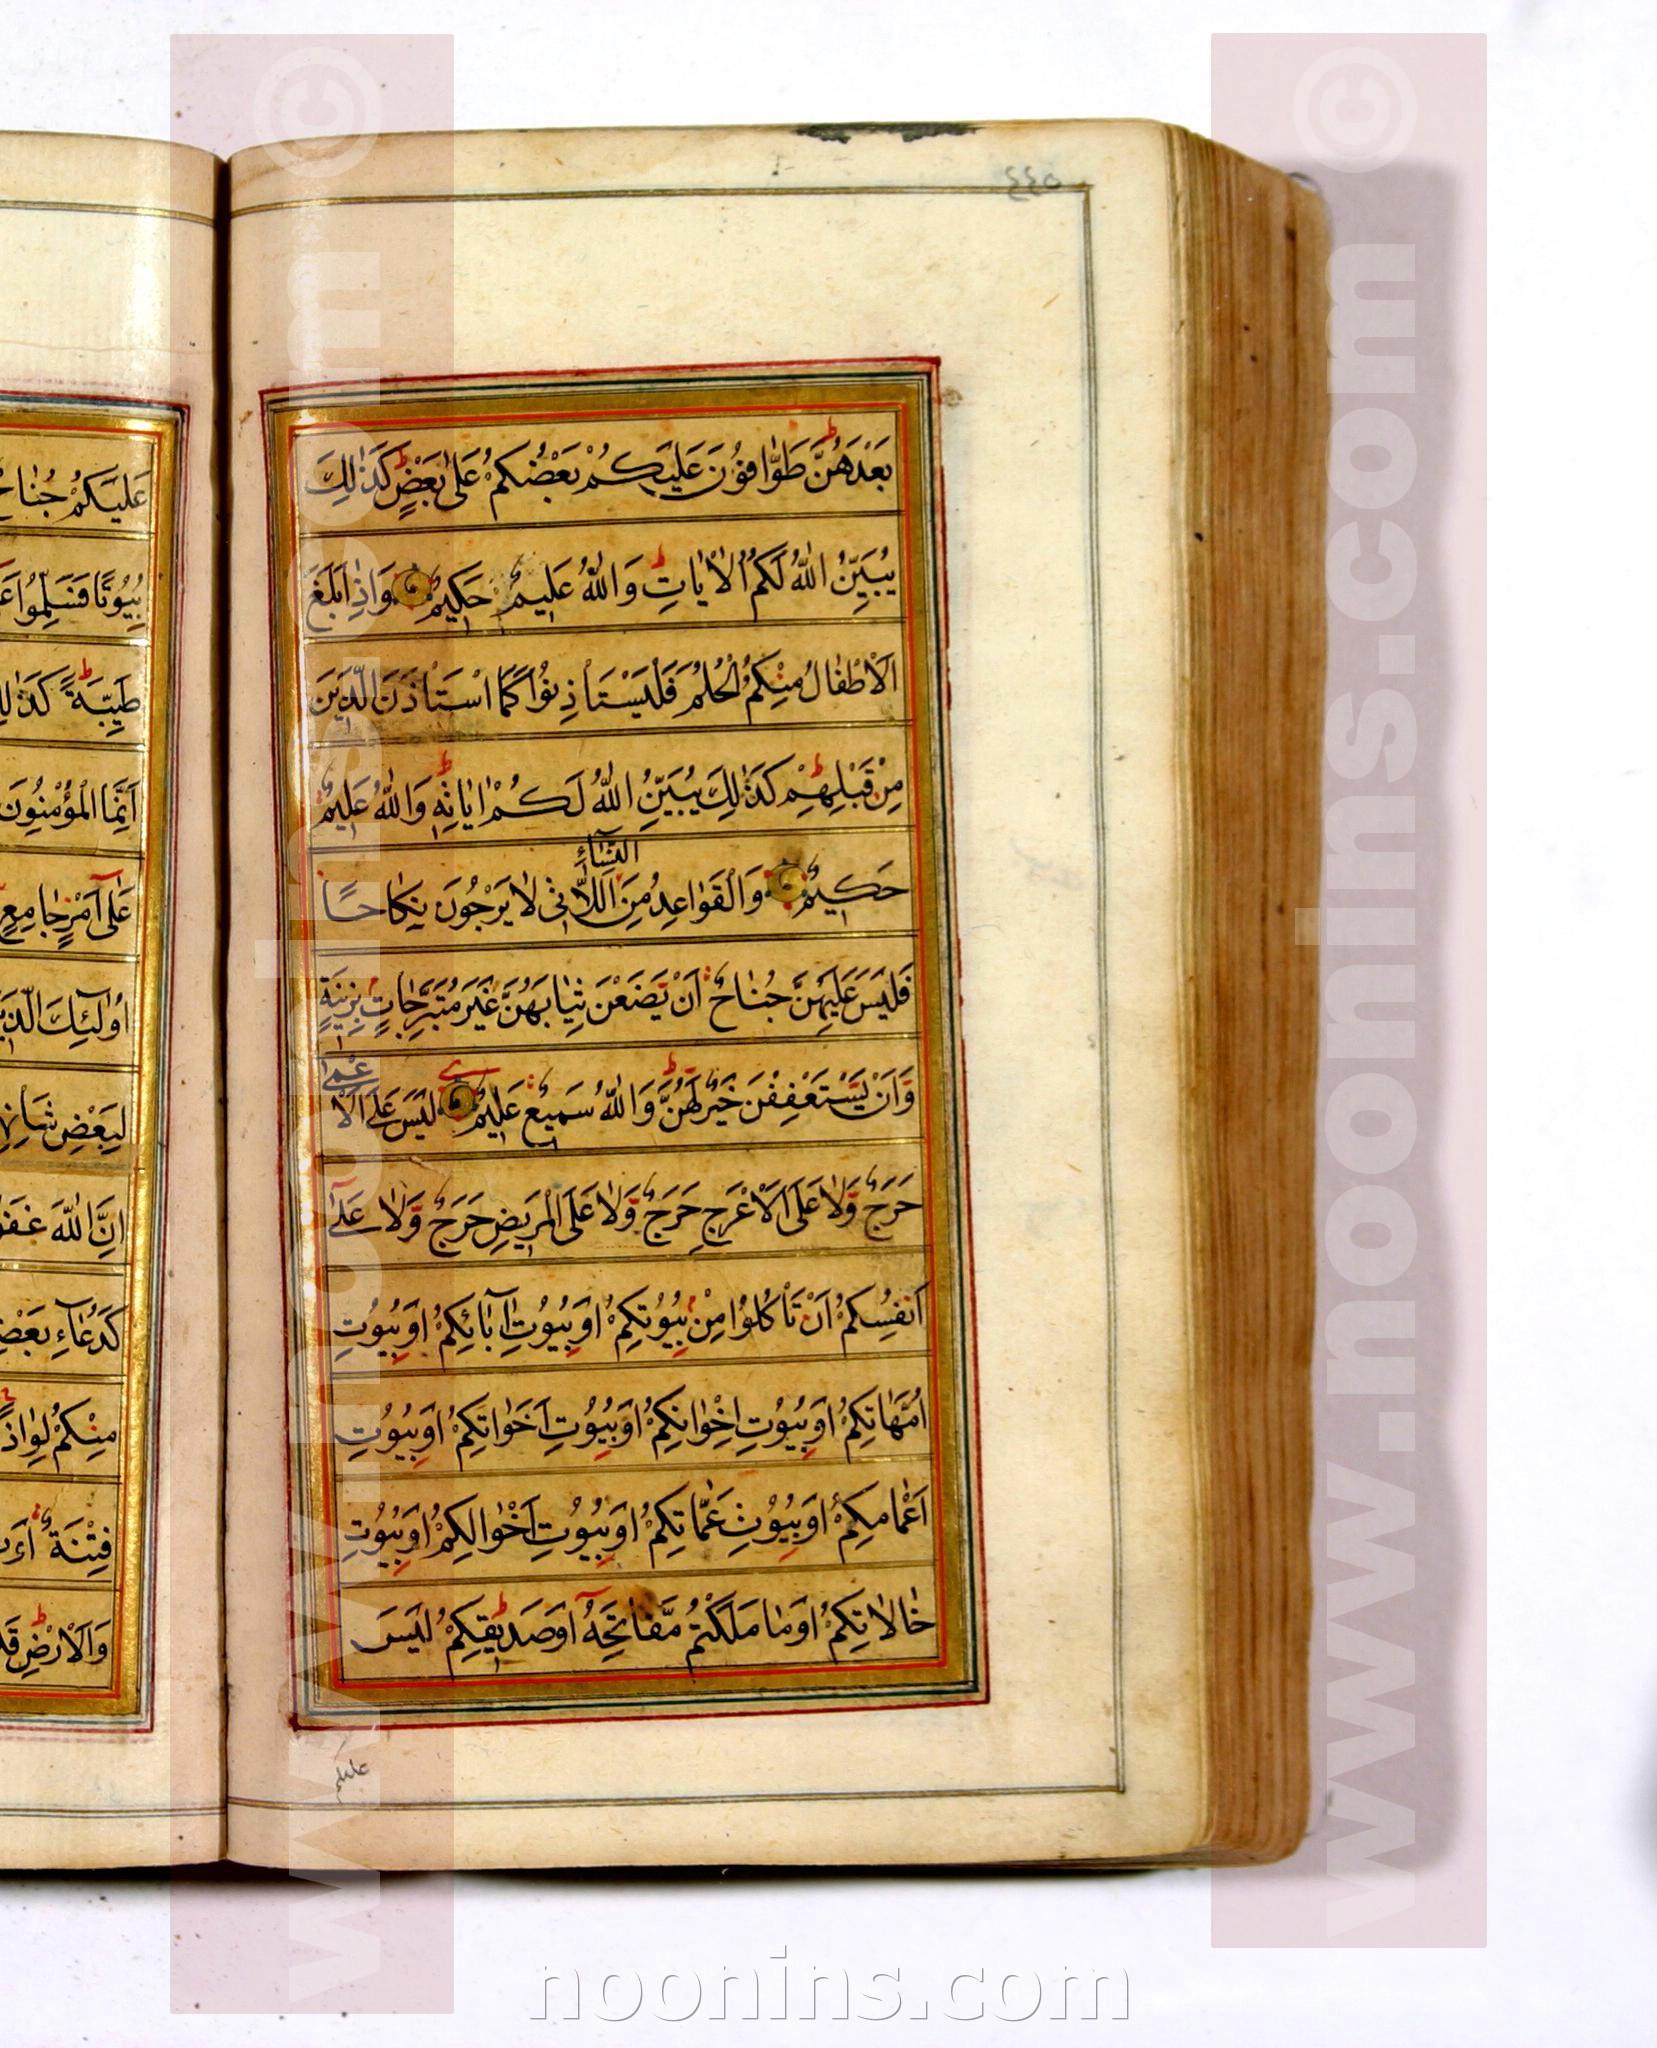 ٤٤٥
بَعْدَهُنَّ طَوّٰافُونَ عَلَيْكُمْ بَعْضُكُمْ عَلىٰ بَعْضٍ كَذٰلِكَ
يُبَيِّنُ اللّٰهُ لَكُمُ الْاٰيٰاتِ وَاللّٰهُ عَلِيمٌ حَكِيمٌ وَاِذٰا بَلَغَ
الْاَطْفٰالُ مِنْكُمُ الْحُلُمَ فَلْيَسْتَأْذِنُوا كَمَا اسْتَأْذَنَ الَّذِينَ
مِنْ قَبْلِهِمْ كَذٰلِكَ يُبَيِّنُ اللّٰهُ لَكُمْ اٰيٰاتِهِ وَاللّٰهُ عَلِيمٌ
حَكِيمٌ وَالْقَوٰاعِدُ مِنَ النِّسٰاءِ اللّٰاتِي لٰا يَرْجُونَ نِكٰاحًا
فَلَيْسَ عَلَيْهِنَّ جُنٰاحٌ اَنْ يَضَعْنَ ثِيٰابَهُنَّ غَيْرَ مُتَبَرِّجٰاتٍ بِزِينَةٍ
وَاَنْ يَسْتَعْفِفْنَ خَيْرٌ لَهُنَّ وَاللّٰهُ سَمِيعٌ عَلِيمٌ لَيْسَ عَلَى الْاَعْمىٰ
حَرَجٌ وَلٰا عَلَى الْاَعْرَجِ حَرَجٌ وَلٰا عَلَى الْمَرِيضِ حَرَجٌ وَلٰا عَلىٰ
اَنْفُسِكُمْ اَنْ تَأْكُلُوا مِنْ بُيُوتِكُمْ اَوْ بُيُوتِ اٰبٰائِكُمْ اَوْ بُيُوتِ
اُمَّهٰاتِكُمْ اَوْ بُيُوتِ اِخْوٰانِكُمْ اَوْ بُيُوتِ اَخَوٰاتِكُمْ اَوْ بُيُوتِ
اَعْمٰامِكُمْ اَوْ بُيُوتِ عَمّٰاتِكُمْ اَوْ بُيُوتِ اَخْوٰالِكُمْ اَوْ بُيُوتِ
خٰالٰاتِكُمْ اَوْ مٰا مَلَكْتُمْ مَفٰاتِحَهُ اَوْ صَدِيقِكُمْ لَيْسَ
عليكم
عَلَيْكُمْ جُنٰاحٌ
بُيُوتًا فَسَلِّمُوا
طَيِّبَةً كَذٰلِكَ
اِنَّمَا الْمُؤْمِنُونَ
عَلىٰ اَمْرٍ جٰامِعٍ
اُولٰئِكَ الَّذِينَ
لِبَعْضِ شَأْنِهِمْ
اِنَّ اللّٰهَ غَفُورٌ
كَدُعٰاءِ بَعْضِ
مِنْكُمْ لِوٰاذًا
فِتْنَةٌ اَوْ
وَالْاَرْضِ قَدْ
www.noonins.com ©
www.noonins.com ©
noonins.com